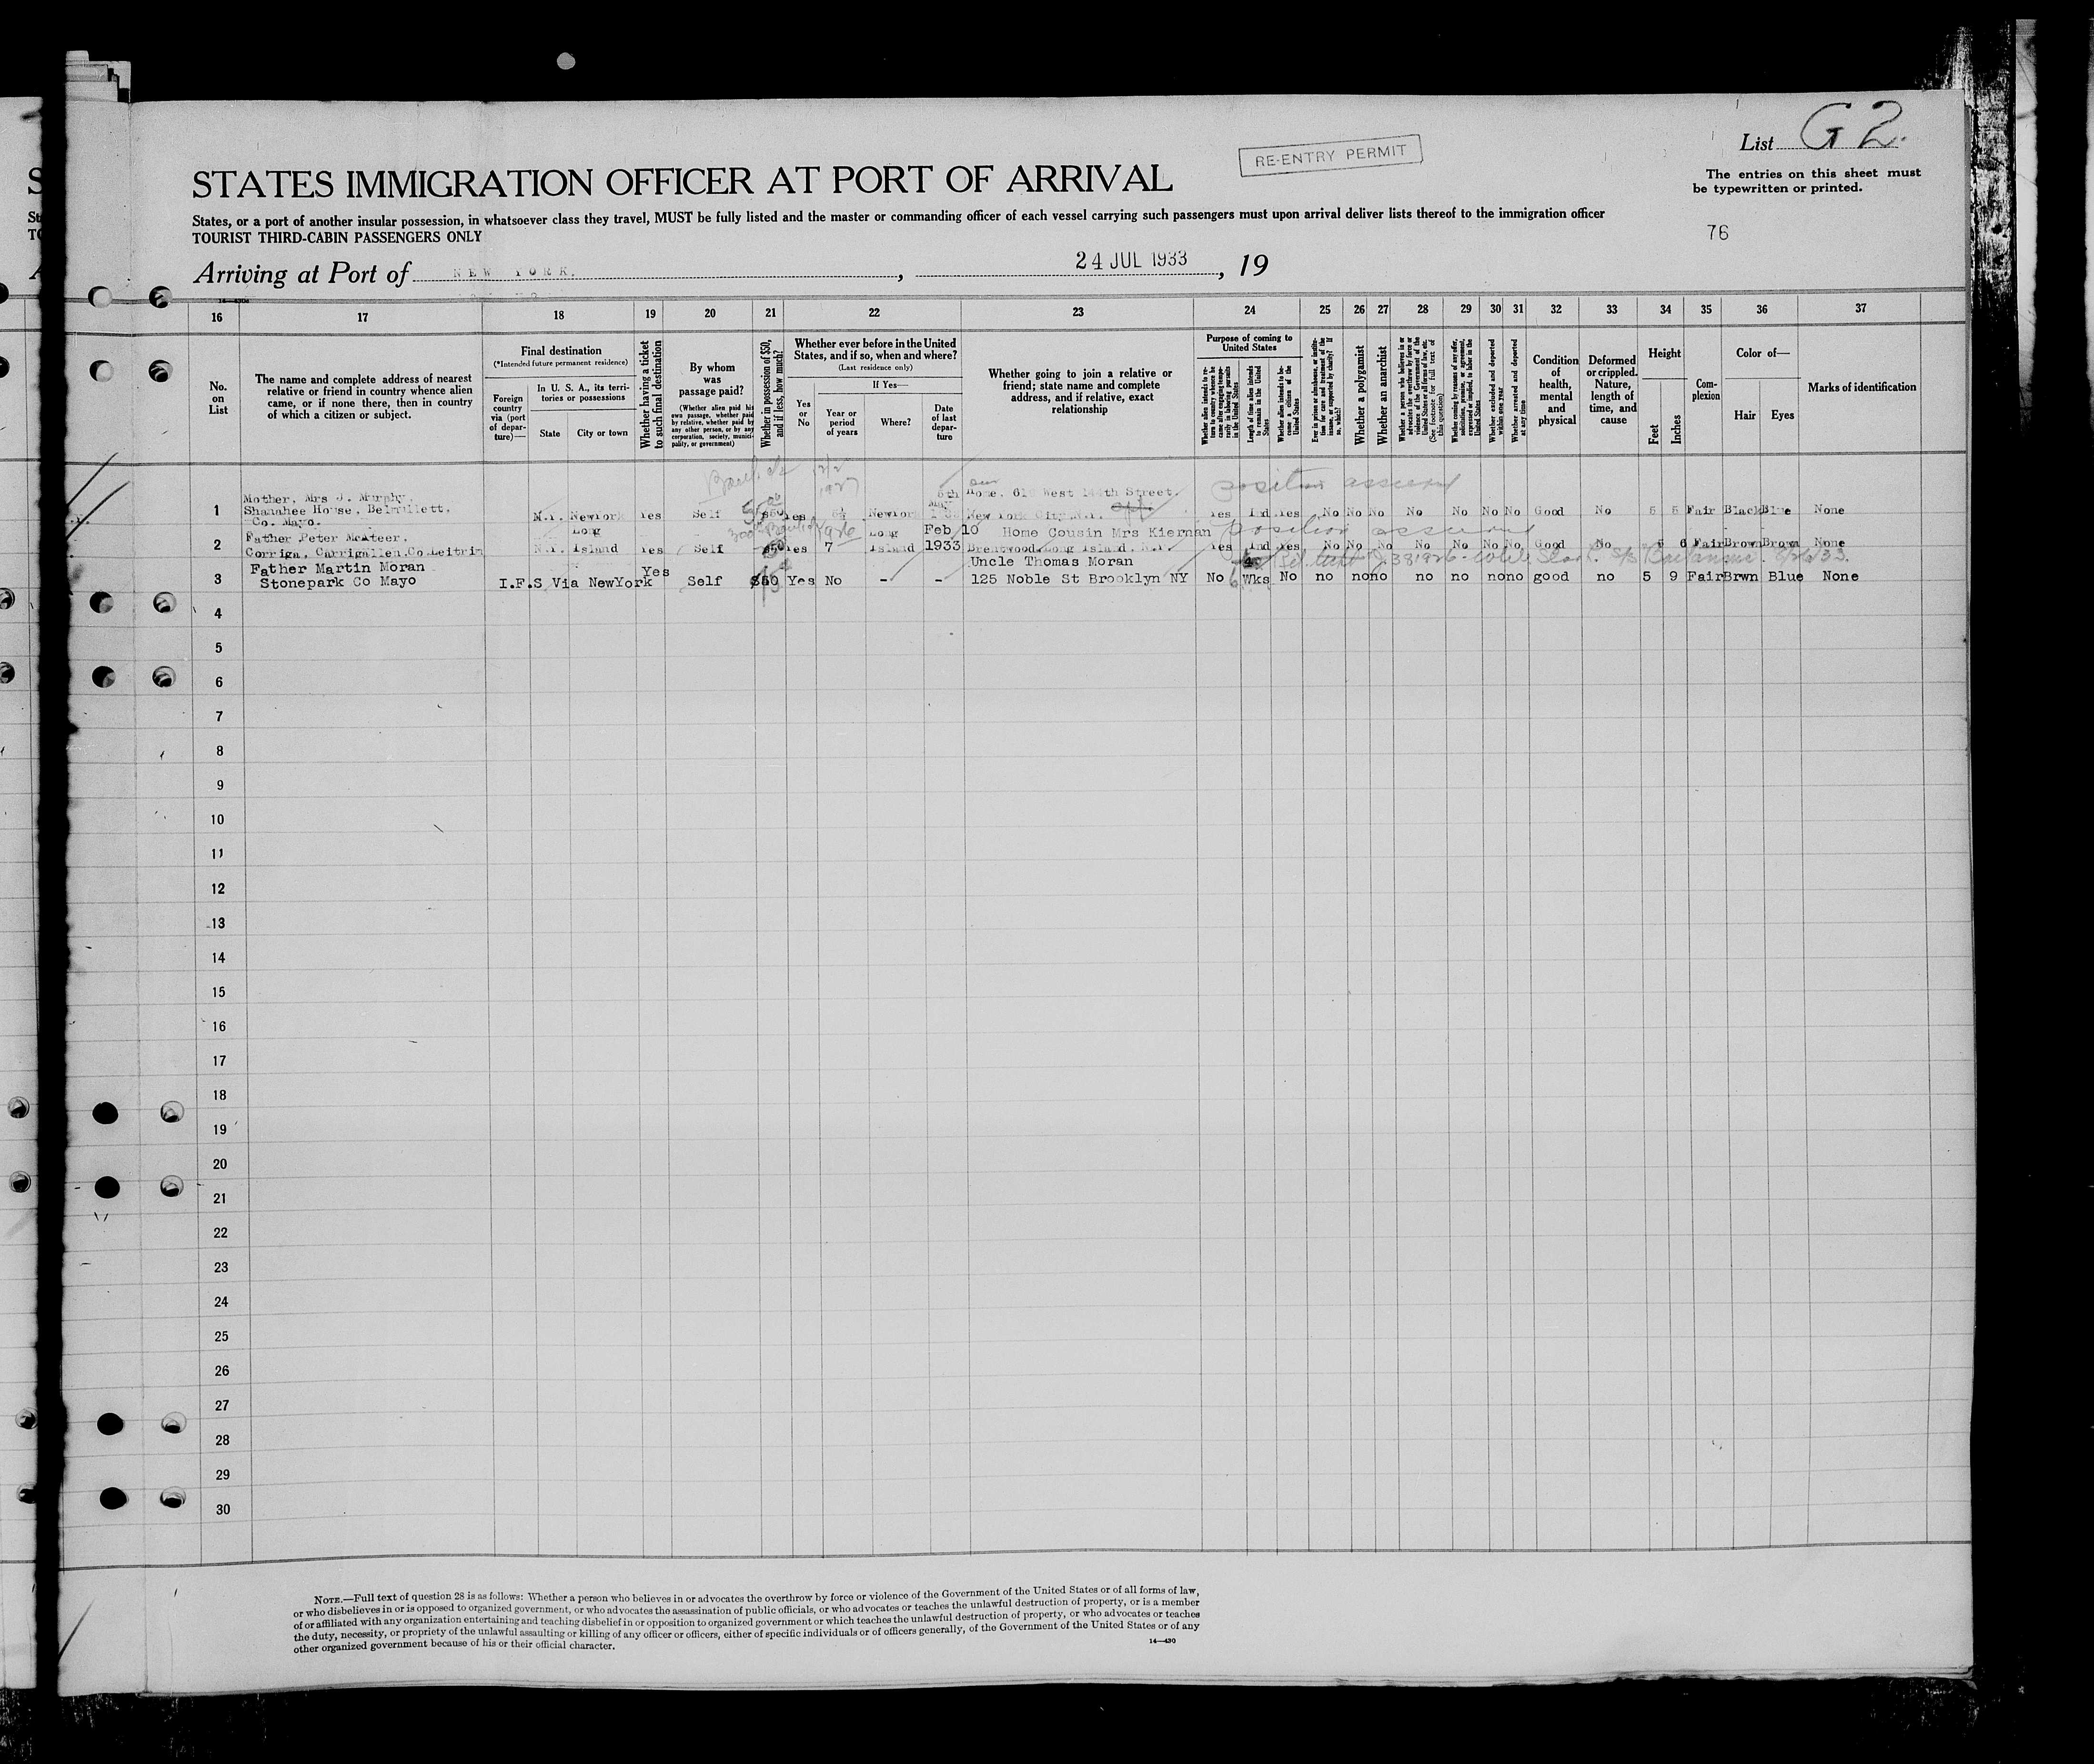 List G 2.
RE-ENTRY PERMIT
STATES IMMIGRATION OFFICER AT PORT OF ARRIVAL
The entries on this sheet must
be typewritten or printed.
States, or a port of another insular possession, in whatsoever class they travel, MUST be fully listed and the master or commanding officer of each vessel carrying such passengers must upon arrival deliver lists thereof to the immigration officer
TOURIST THIRD-CABIN PASSENGERS ONLY
76
Arriving at Port of NEW YORK. , 24 JUL 1933 , 19
16 17 18 19 20 21 22 23 24 25 26 27 28 29 30 31 32 33 34 35 36 37
No.
on
List
The name and complete address of nearest
relative or friend in country whence alien
came, or if none there, then in country
of which a citizen or subject.
Final destination
(*Intended future permanent residence)
Foreign
country
via (port
of depar-
ture)—
In U. S. A., its terri-
tories or possessions
State
City or town
Whether having a ticket
to such final destination
By whom
was
passage paid?
(Whether alien paid his
own passage, whether paid
by relative, whether paid by
any other person, or by any
corporation, society, munici-
pality, or government)
Whether in possession of $50,
and if less, how much?
Whether ever before in the United
States, and if so, when and where?
(Last residence only)
Yes
or
No
If Yes—
Year or
period
of years
Where?
Date
of last
depar-
ture
Whether going to join a relative or
friend; state name and complete
address, and if relative, exact
relationship
Purpose of coming to
United States
Whether alien intends to re-
turn to country whence he
came after engaging tempo-
rarily in laboring pursuits
in the United States
Length of time alien intends
to remain in the United
States
Whether alien intends to be-
come a citizen of the
United States
Ever in prison or almshouse, or institu-
tion for care and treatment of the
insane, or supported by charity? If
so, which?
Whether a polygamist
Whether an anarchist
Whether a person who believes in or
advocates the overthrow by force or
violence of the Government of the
United States or all forms of law, etc.
(See footnote for full text of
this question)
Whether coming by reason of any offer,
solicitation, promise, or agreement,
expressed or implied, to labor in the
United States
Whether excluded and deported
within one year
Whether arrested and deported
at any time
Condition
of
health,
mental
and
physical
Deformed
or crippled.
Nature,
length of
time, and
cause
Height
Feet
Inches
Com-
plexion
Color of—
Hair
Eyes
Marks of identification
position assured
Mother, Mrs J. Murphy, 5th Home, 610 West 144th Street.
1 Shanahee House, Belmullett, N.Y. NewYork Yes Self $50 Yes 5½ NewYork New York City N.Y. Yes Ind Yes No No No No No No No Good No 5 5 Fair Black Blue None
Co. Mayo.
position assured
Father Peter McAteer, Long Long Feb 10 Home Cousin Mrs Kiernan
2 Corriga, Carrigallen.Co.Leitrim N.Y. Island Yes Self $50 Yes 7 Island 1933 Brentwood,Long Island, N.Y. Yes Ind Yes No No No No No No No Good No 5 6 Fair Brown Brown None
Father Martin Moran Yes Uncle Thomas Moran
3 Stonepark Co Mayo I.F.S Via NewYork Self $50 Yes No - - 125 Noble St Brooklyn NY No 6 Wks No no no no no no no no good no 5 9 Fair Brwn Blue None
4
5
6
7
8
9
10
11
12
13
14
15
16
17
18
19
20
21
22
23
24
25
26
27
28
29
30
NOTE.—Full text of question 28 is as follows: Whether a person who believes in or advocates the overthrow by force or violence of the Government of the United States or of all forms of law,
or who disbelieves in or is opposed to organized government, or who advocates the assassination of public officials, or who advocates or teaches the unlawful destruction of property, or is a member
of or affiliated with any organization entertaining and teaching disbelief in or opposition to organized government or which teaches the unlawful destruction of property, or who advocates or teaches
the duty, necessity, or propriety of the unlawful assaulting or killing of any officer or officers, either of specific individuals or of officers generally, of the Government of the United States or of any
other organized government because of his or their official character.
14—430